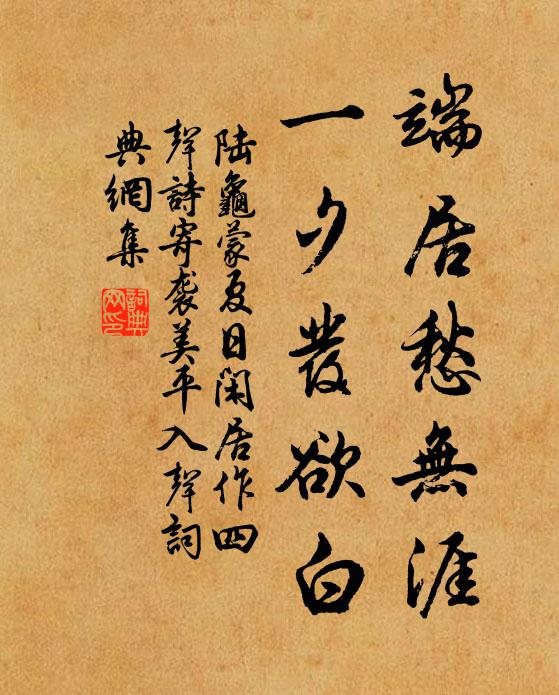 端居愁無涯
一夕發欲白
陸龜蒙夏日閑居作四
聲詩寄袭美平入聲詞
典網集
詞典網印